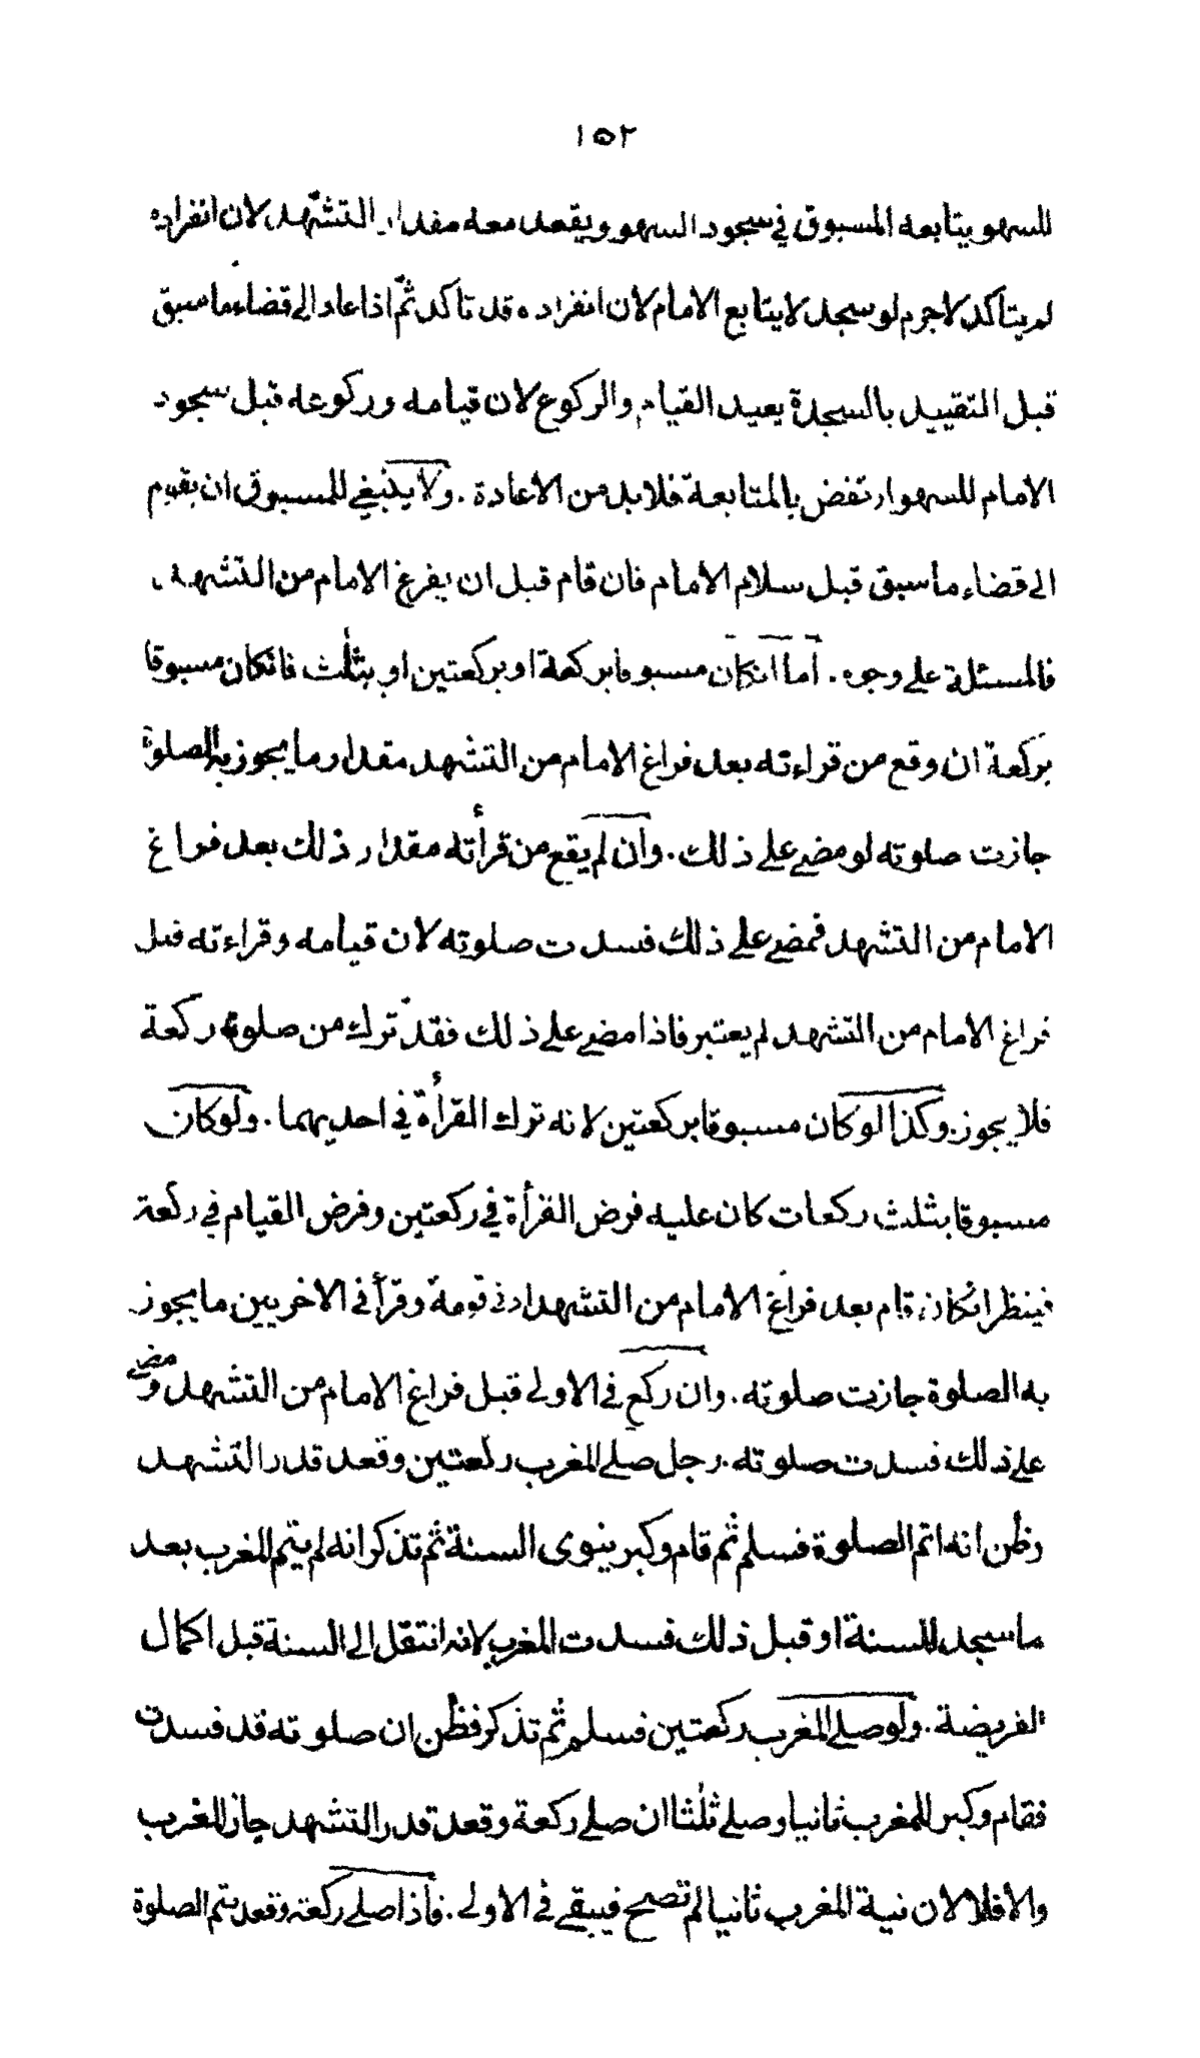 ١٥٢
للسهو يتابعه المسبوق في سجود السهو ويقعد معه مقدار التشهد لان انفراده
لم يتاكد لاجرم لو سجد لا يتابع الامام لان انفراده قد تاكد ثمّ اذا عاد الى قضاء ما سبق
قبل التقييد بالسجدة يعيد القيام والركوع لان قيامه وركوعه قبل سجود
الامام للسهو ارتفض بالمتابعة فلابد من الاعادة . ولا ينبغي للمسبوق ان يقوم
الى قضاء ما سبق قبل سلام الامام فان قام قبل ان يفرغ الامام من التشهد
فالمسئلة على وجوه . اما انكان مسبوقا بركعة او بركعتين او بثلٰث فانكان مسبوقا
بركعة ان وقع من قراءته بعد فراغ الامام من التشهد مقدار ما يجوز به الصلوة
جازت صلوته لو مضى على ذلك . وان لم يقع من قرأته مقدار ذلك بعد فراغ
الامام من التشهد فمضى على ذلك فسدت صلوته لان قيامه وقراءته قبل
فراغ الامام من التشهد لم يعتبر فاذا مضى على ذلك فقد ترك من صلوته ركعة
فلا يجوز . وكذا لو كان مسبوقا بركعتين لانه ترك القرأة في احديهما . ولو كان
مسبوقا بثلث ركعات كان عليه فرض القرأة في ركعتين وفرض القيام في ركعة
فينظر انكان قام بعد فراغ الامام من التشهد ادنى قومة وقرأ في الاخريين ما يجوز
به الصلوة جازت صلوته . وان ركع في الاولى قبل فراغ الامام من التشهد ومضى
على ذلك فسدت صلوته . رجل صلى المغرب ركعتين وقعد قدر التشهد
وظن انه اتم الصلوة فسلم ثم قام وكبر ينوى السنة ثم تذكر انه لم يتم المغرب بعد
ما سجد للسنة او قبل ذلك فسدت المغرب لانه انتقل الى السنة قبل اكمال
الفريضة . ولو صلى المغرب ركعتين فسلم ثم تذكر فظن ان صلوته قد فسدت
فقام وكبر للمغرب ثانيا وصلى ثلٰثا ان صلى ركعة وقعد قدر التشهد جاز المغرب
والا فلا لان نية المغرب ثانيا لم تصح فيبقى في الاولى . فاذا صلى ركعة وقعد يتم الصلوة